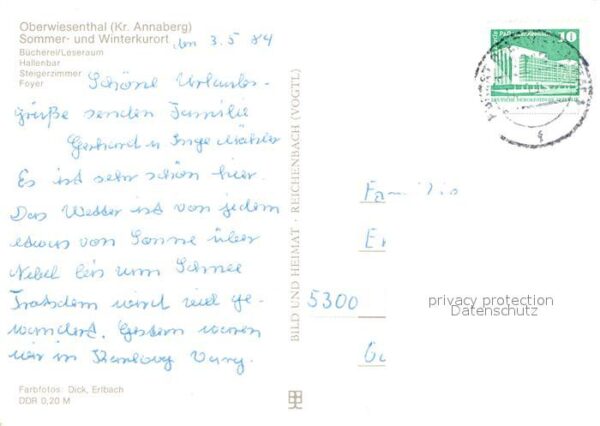 Oberwiesenthal (Kr. Annaberg)
Sommer- und Winterkurort
Bücherei/Leseraum
Hallenbar
Steigerzimmer
Foyer
den 3.5.84
Schöne Urlaubs-
grüße senden Familie
Gerhard u Inge
Es ist sehr schön hier.
Das Wetter ist von jedem
etwas von Sonne über
Nebel bis zum Schnee
Trotzdem wird viel ge-
wandert. Gestern waren
wir in
Farbfotos: Dick, Erlbach
DDR 0,20 M
BILD UND HEIMAT · REICHENBACH (VOGTL)
10
DEUTSCHE DEMOKRATISCHE REPUBLIK
Familie
5300
privacy protection
Datenschutz